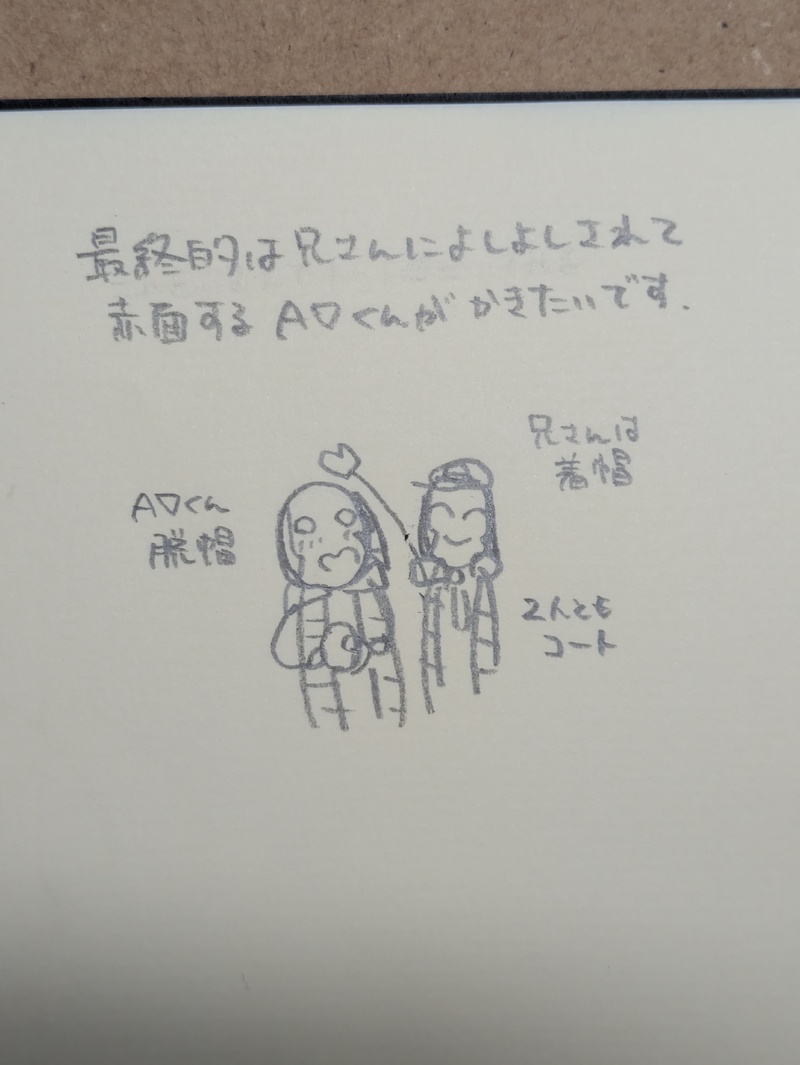 最終的は兄さんによしよしされて
赤面するA▽くんがかきたいです.
兄さんは
着帽
A▽くん
脱帽
2人とも
コート